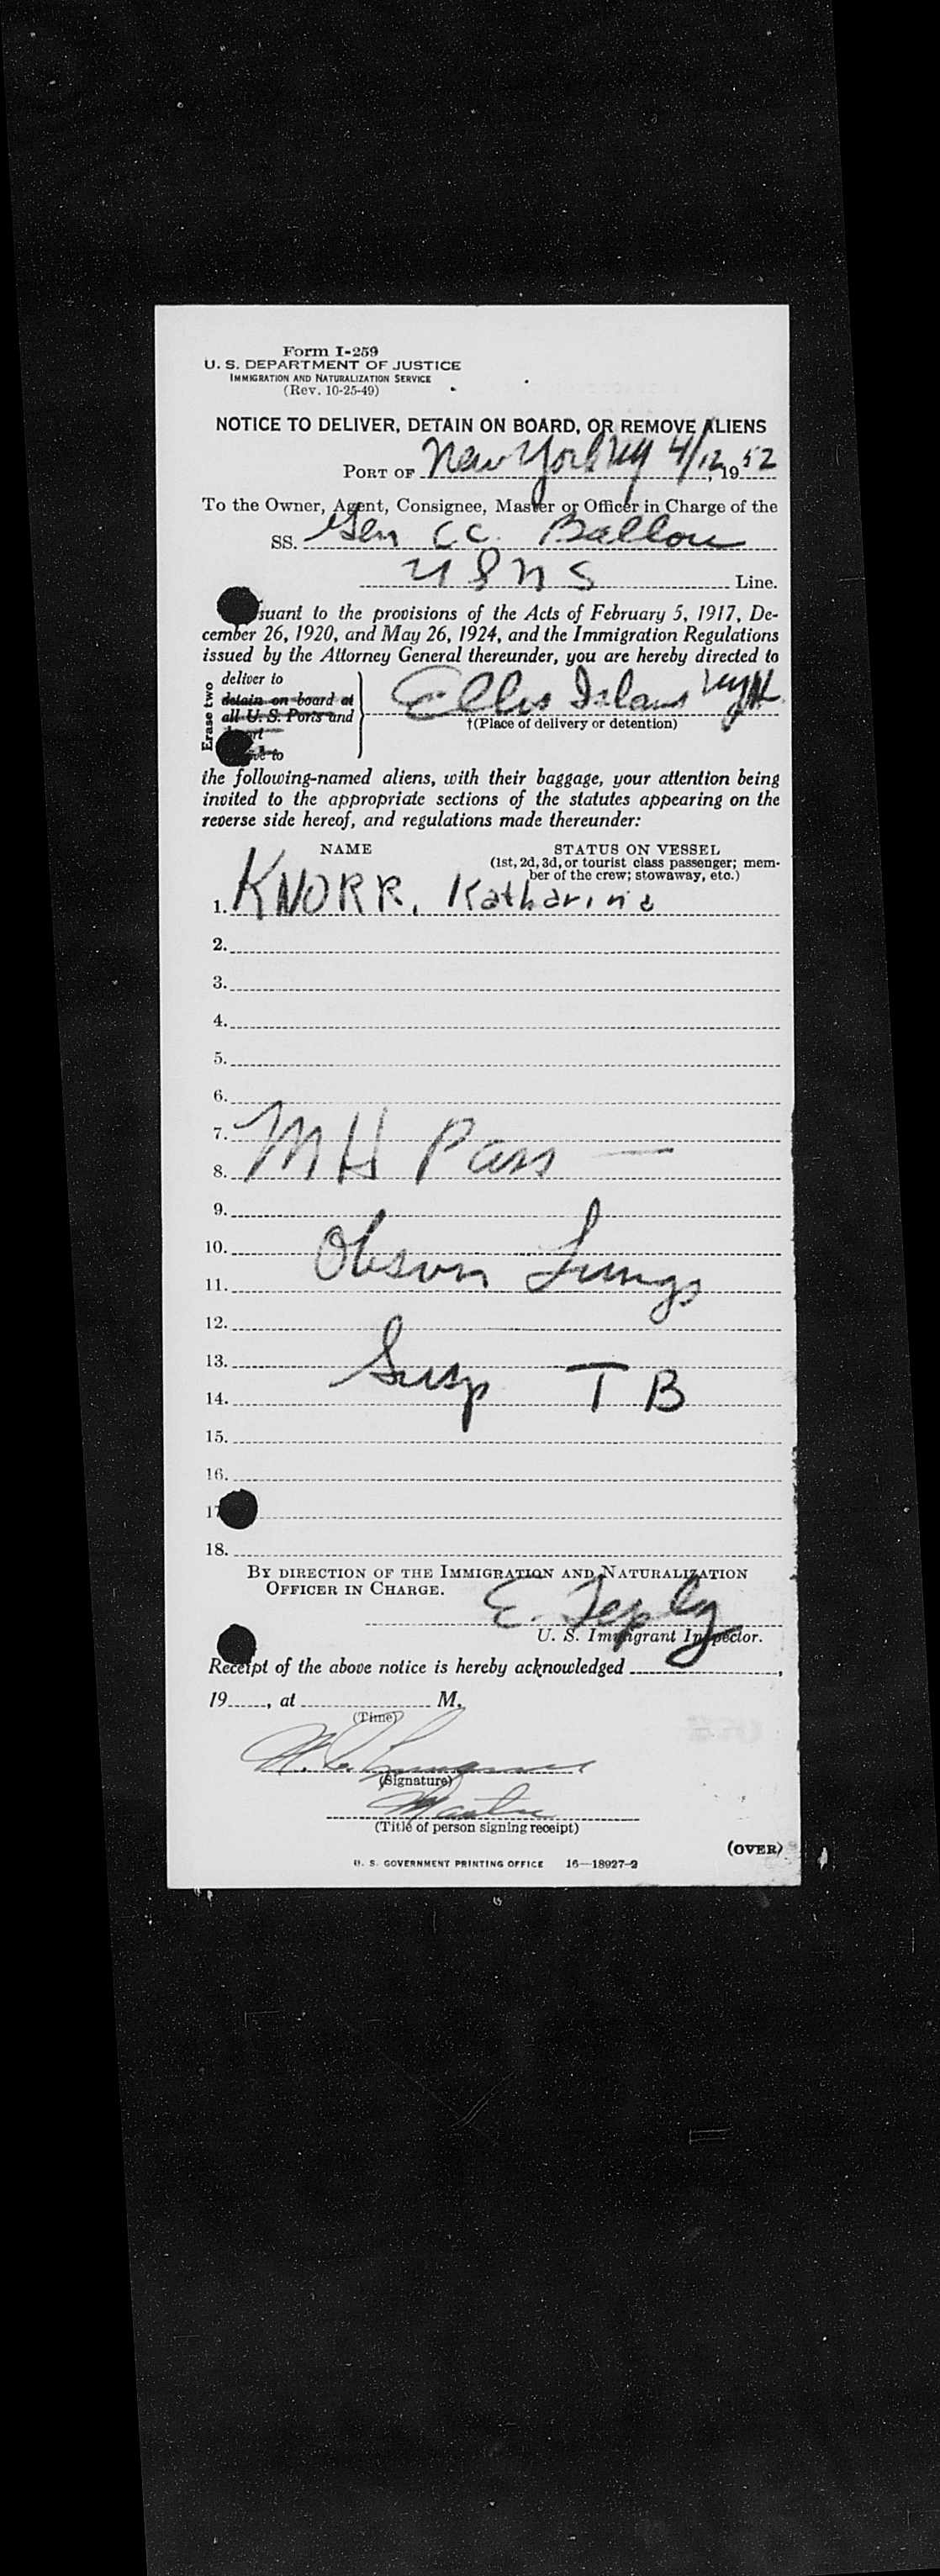 Form I-259
U. S. DEPARTMENT OF JUSTICE
IMMIGRATION AND NATURALIZATION SERVICE
(Rev. 10-25-49)
NOTICE TO DELIVER, DETAIN ON BOARD, OR REMOVE ALIENS
PORT OF New York NY 4/12, 1952
To the Owner, Agent, Consignee, Master or Officer in Charge of the
SS. Gen CC. Ballou
USNS Line.
suant to the provisions of the Acts of February 5, 1917, De-
cember 26, 1920, and May 26, 1924, and the Immigration Regulations
issued by the Attorney General thereunder, you are hereby directed to
Erase two
deliver to
detain on board at
all U. S. Ports and
Ellis Island NYH
†(Place of delivery or detention)
the following-named aliens, with their baggage, your attention being
invited to the appropriate sections of the statutes appearing on the
reverse side hereof, and regulations made thereunder:
NAME STATUS ON VESSEL
(1st, 2d, 3d, or tourist class passenger; mem-
ber of the crew; stowaway, etc.)
1. KNORR, Katharina
2.
3.
4.
5.
6.
7. MH Pass —
8.
9.
10. Obsvn Lungs
11.
12.
13. Susp T B
14.
15.
16.
17
18.
BY DIRECTION OF THE IMMIGRATION AND NATURALIZATION
OFFICER IN CHARGE.
E. Teply
U. S. Immigrant Inspector.
Receipt of the above notice is hereby acknowledged ,
19 , at M.
(Time)
(Signature)
Master
(Title of person signing receipt)
(OVER)
U. S. GOVERNMENT PRINTING OFFICE 16—18927-2